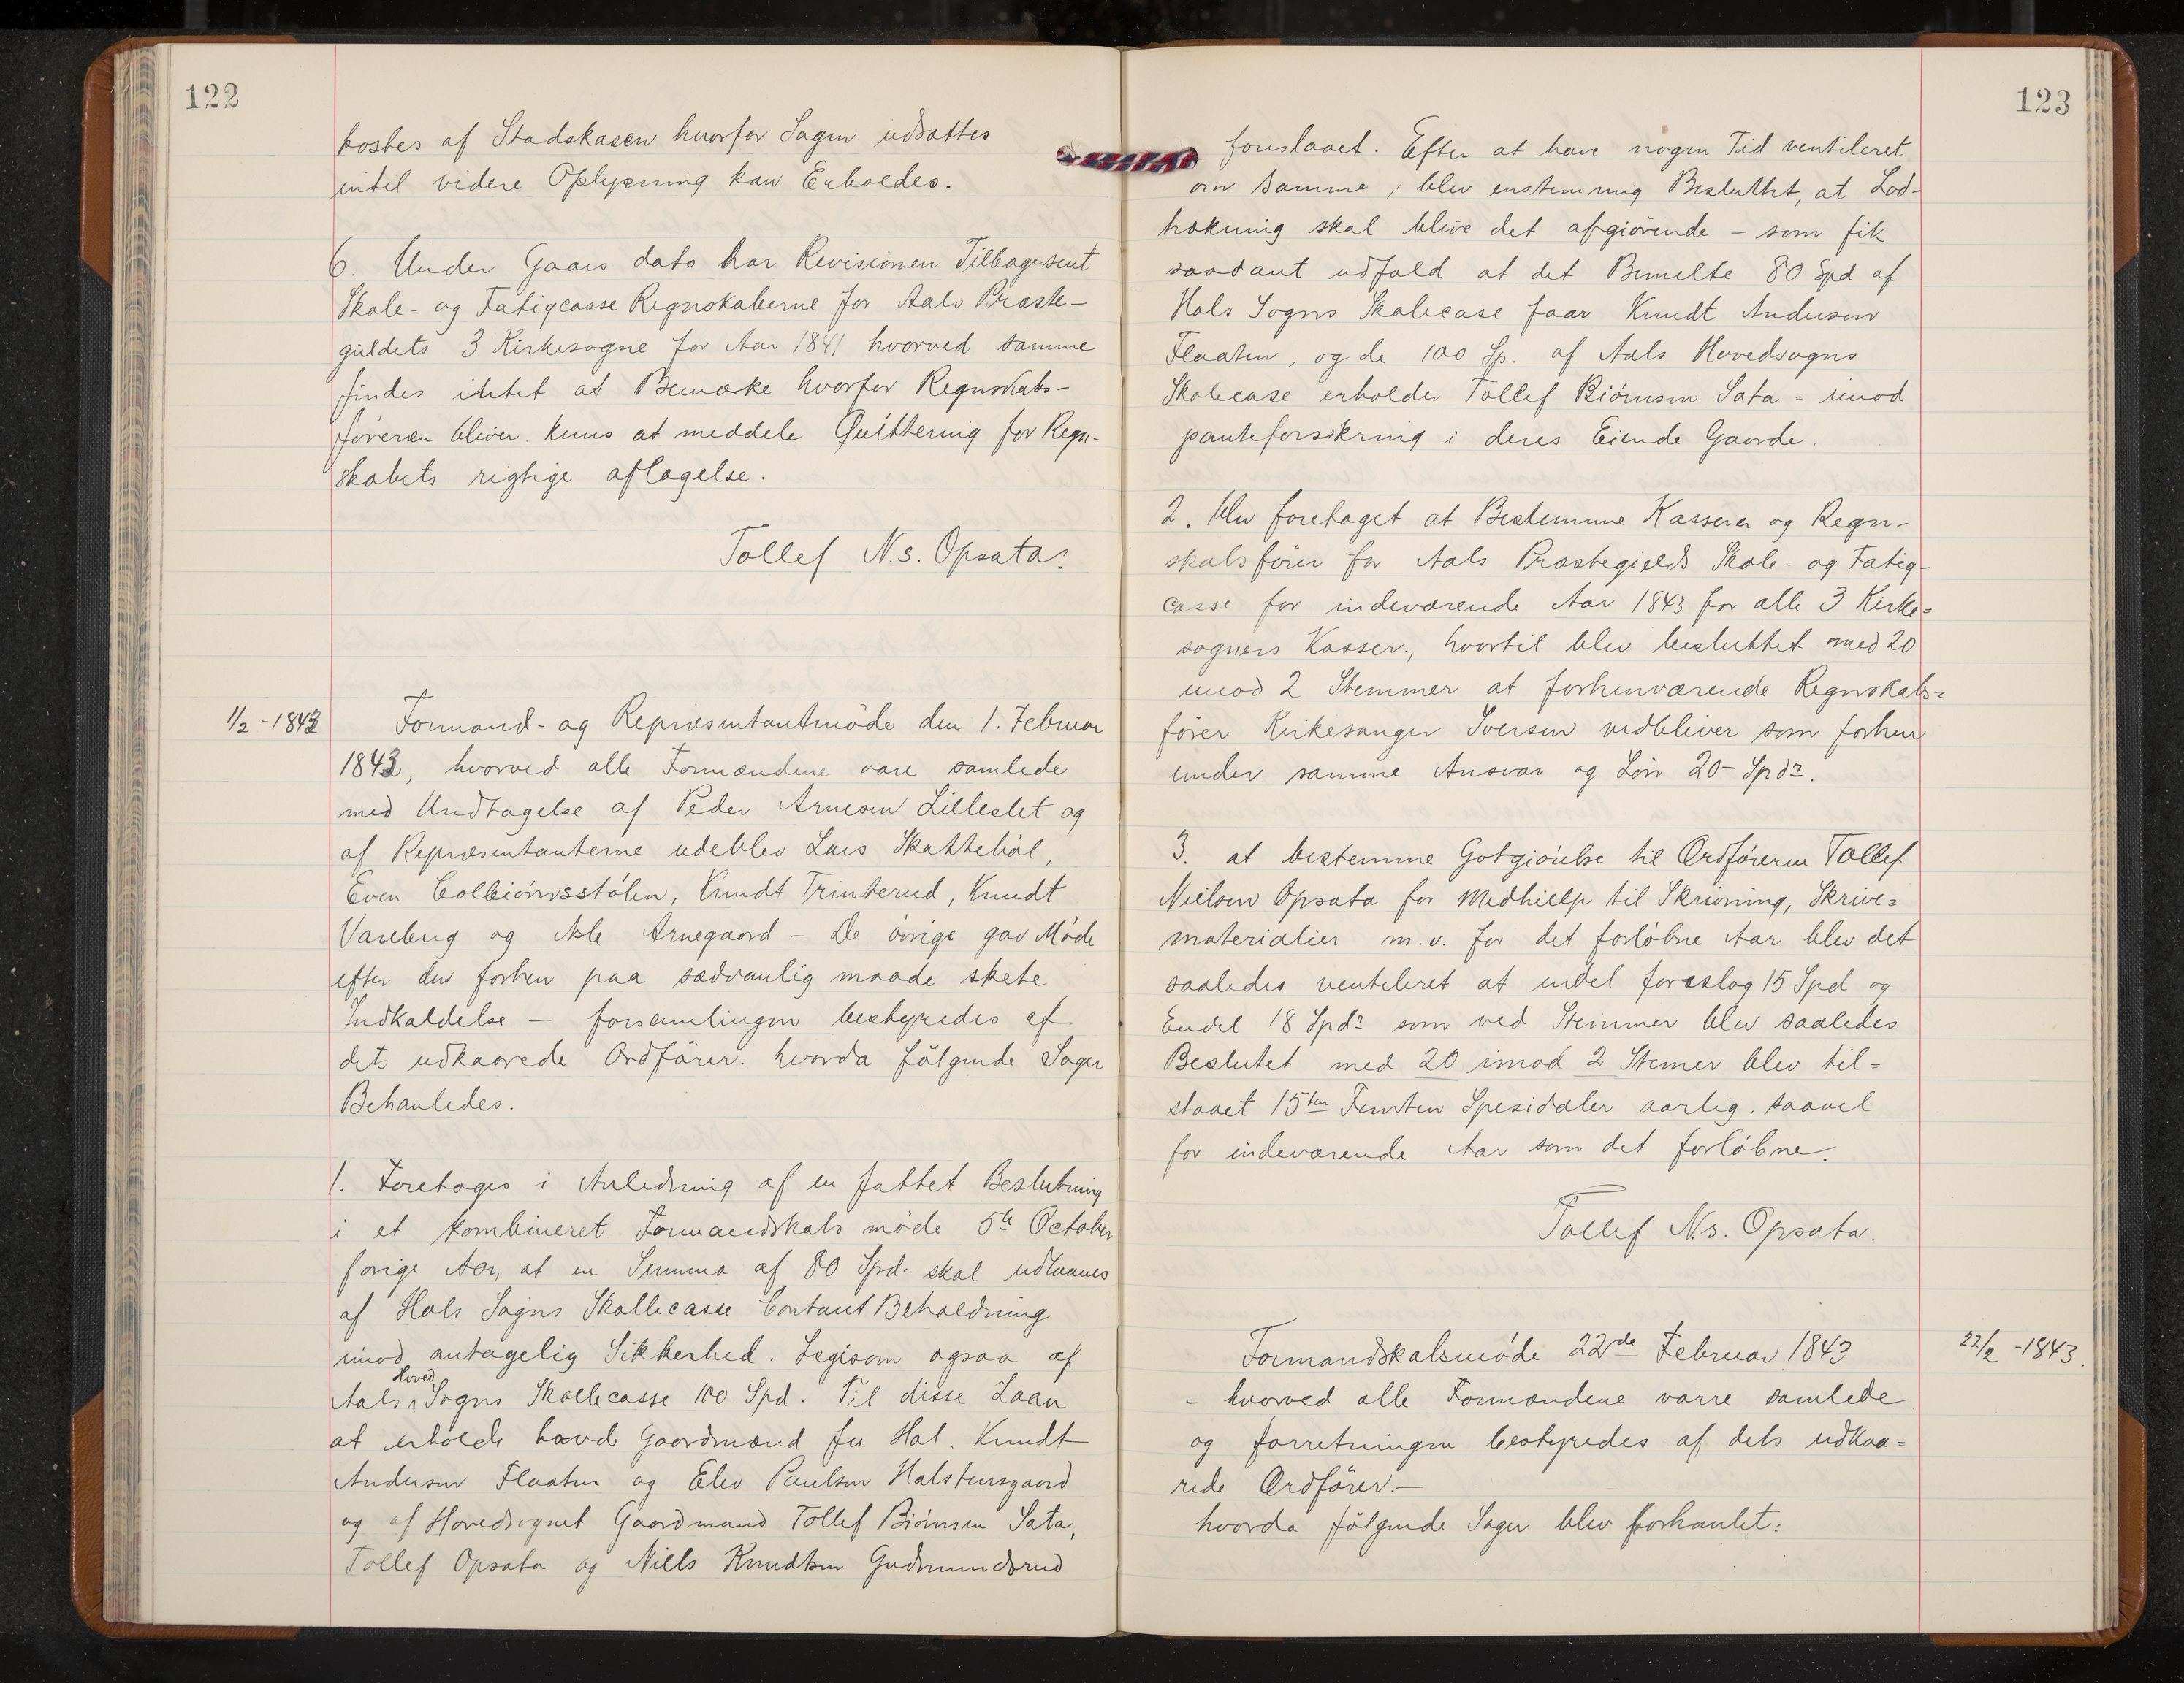 122
kostes af Stadskasen hvorfor Sagen udsattes
intil videre Oplysning kan Erholdes.
6. Under Gaars dato har Revisionen Tilbagesent
Skole- og Fatigcasse Regnskaberne for Aals Præste-
gieldets 3 Kirkesogne for Aar 1841 hvorved samme
findes intet at Bemærke hvorfor Regnskabs-
føreren bliver kuns at meddele Quittering for Regn-
skabets rigtige aflagelse.
Tollef N.s. Opsata.
1/2 - 1843
Formand- og Repræsentantmøde den 1. Februar
1843, hvorved alle Formændene vare samlede
med Undtagelse af Peder Arnesen Lilleslet og
af Repræsentanterne udeblev Lars Skattebøl,
Even Colbiørnsstølen, Knudt Trinterud, Knudt
Vareberg og Asle Arnegaard - De øvrige gav Møde
efter den forhen paa sædvanlig maade skete
Indkaldelse - forsamlingen bestyredes af
dets udkaarede Ordfører. hvorda følgende Sager
Behanledes.
1. Foretoges i Anledning af en fattet Beslutning
i et kombineret Formandskabs møde 5te October
forige Aar, at en Summa af 80 Spd. skal udlaanes
af Hols Sogns Skollecasse Contant Beholdning
imod antagelig Sikkerhed. Ligisom ogsaa af
Aals Hoved Sogns Skollecasse 100 Spd. Til disse Laan
at erholde havde Gaardmænd fra Hol. Knudt
Andersen Flaaten og Elev Paulsen Halstensgaard
og af Hovedsognet Gaardmand Tollef Biørnsen Sata,
Tollef Opsata og Niels Knudtsen Gudmundsrud
123
foreslaaet. Efter at have nogen Tid ventileret
om samme, blev enstemmig Besluttet, at Lod-
trækning skal blive det afgiørende - som fik
saadant udfald at det Bemelte 80 Spd af
Hols Sogns Skolecase faar Knudt Andersen
Flaaten, og de 100 Sp. af Aals Hovedsogns
Skolecase erholder Tollef Biørnsen Sata - imod
panteforsikring i deres Eiende Gaarde.
2. blev foretaget at Bestemme Kasserer og Regn-
skabsfører for Aals Præstegields Skole- og Fatig-
casse for indeværende Aar 1843 for alle 3 Kirke=
sogners Kasser., hvortil blev besluttet med 20
imod 2 Stemmer at forhenværende Regnskabs=
fører Kirkesanger Iversen vedbliver som forhen
under samme Ansvar og Løn 20 - Spdr.
3. at bestemme Gotgiørelse til Ordføreren Tollef
Nielsen Opsata for Medhielp til Skrivning, Skrive=
materialier m.v. for det forløbne Aar blev det
saaledes ventileret at endel foreslog 15 Spd og
Endel 18 Spdr som ved Stemmer blev saaledes
Beslutet med 20 imod 2 Stemer blev til=
staaet 15ten Femten Spesidaler aarlig. saavel
for indeværende Aar som det forløbne.
Tollef N.s. Opsata.
22/2 - 1843.
Formandskabsmøde 22de Februar 1843
- hvorved alle Formændene varre samlede
og forretningen bestyredes af dets udkaa=
rede Ordfører. -
hvorda følgende Sager blev forhanlet: